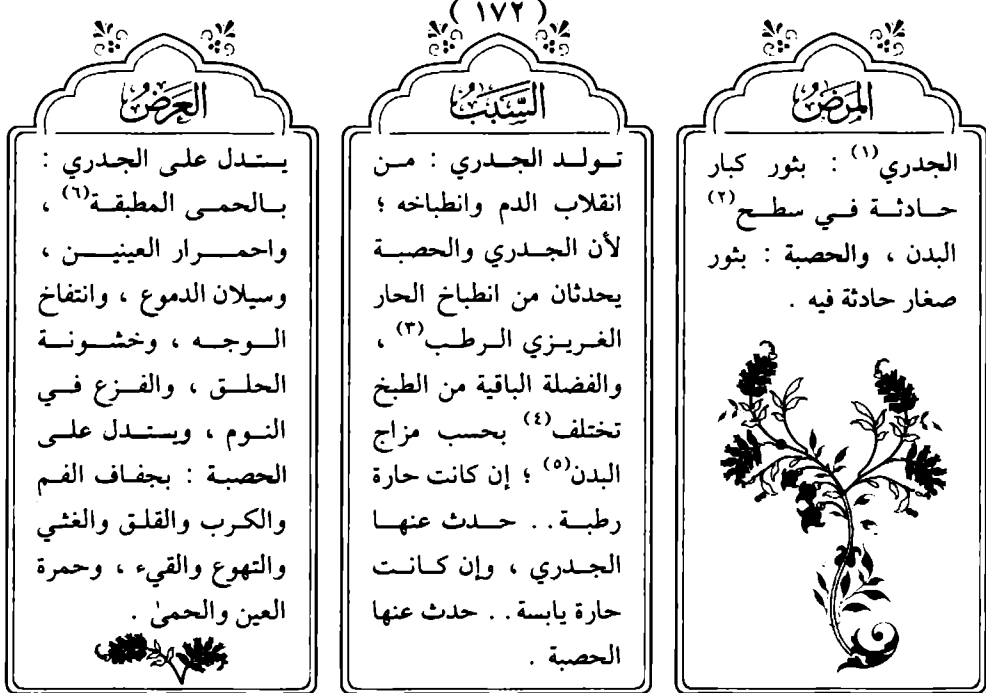 ( ١٧٢ )
المَرَضُ
الجدري(١) : بثور كبار
حادثة في سطح(٢)
البدن ، والحصبة : بثور
صغار حادثة فيه .
السَّبَبُ
تولد الجدري : من
انقلاب الدم وانطباخه ؛
لأن الجدري والحصبة
يحدثان من انطباخ الحار
الغريزي الرطب(٣) ،
والفضلة الباقية من الطبخ
تختلف(٤) بحسب مزاج
البدن(٥) ؛ إن كانت حارة
رطبة . . حدث عنها
الجدري ، وإن كانت
حارة يابسة . . حدث عنها
الحصبة .
العَرَضُ
يستدل على الجدري :
بالحمى المطبقة(٦) ،
واحمرار العينين ،
وسيلان الدموع ، وانتفاخ
الوجه ، وخشونة
الحلق ، والفزع في
النوم ، ويستدل على
الحصبة : بجفاف الفم
والكرب والقلق والغثي
والتهوع والقيء ، وحمرة
العين والحمىٰ .